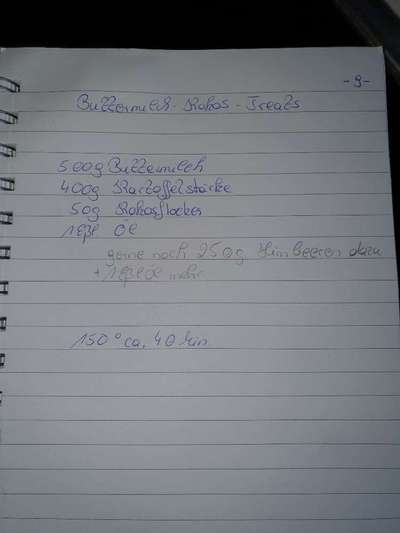 -9-
Buttermilch-Kokos-Treats
500g Buttermilch
400g Kartoffelstärke
50g Kokosflocken
1 Eßl Öl
gerne noch 250g Himbeeren dazu
+ 1 Eßl Öl mehr
150° ca. 40 Min